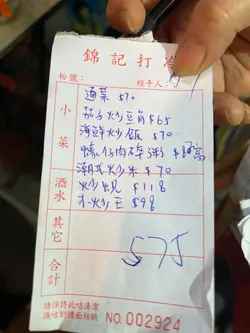 錦記打冷
枱號：
經手人：
小菜
酒水
其它
合計
通菜 $70
茄子炒豆角 $65
海鮮炒飯 $70
蠔仔肉碎粥
潮式炒米 $70
炒蜆 $118
$98
575
請保持此咭清潔
攜咭到櫃面結賬
NO.002924